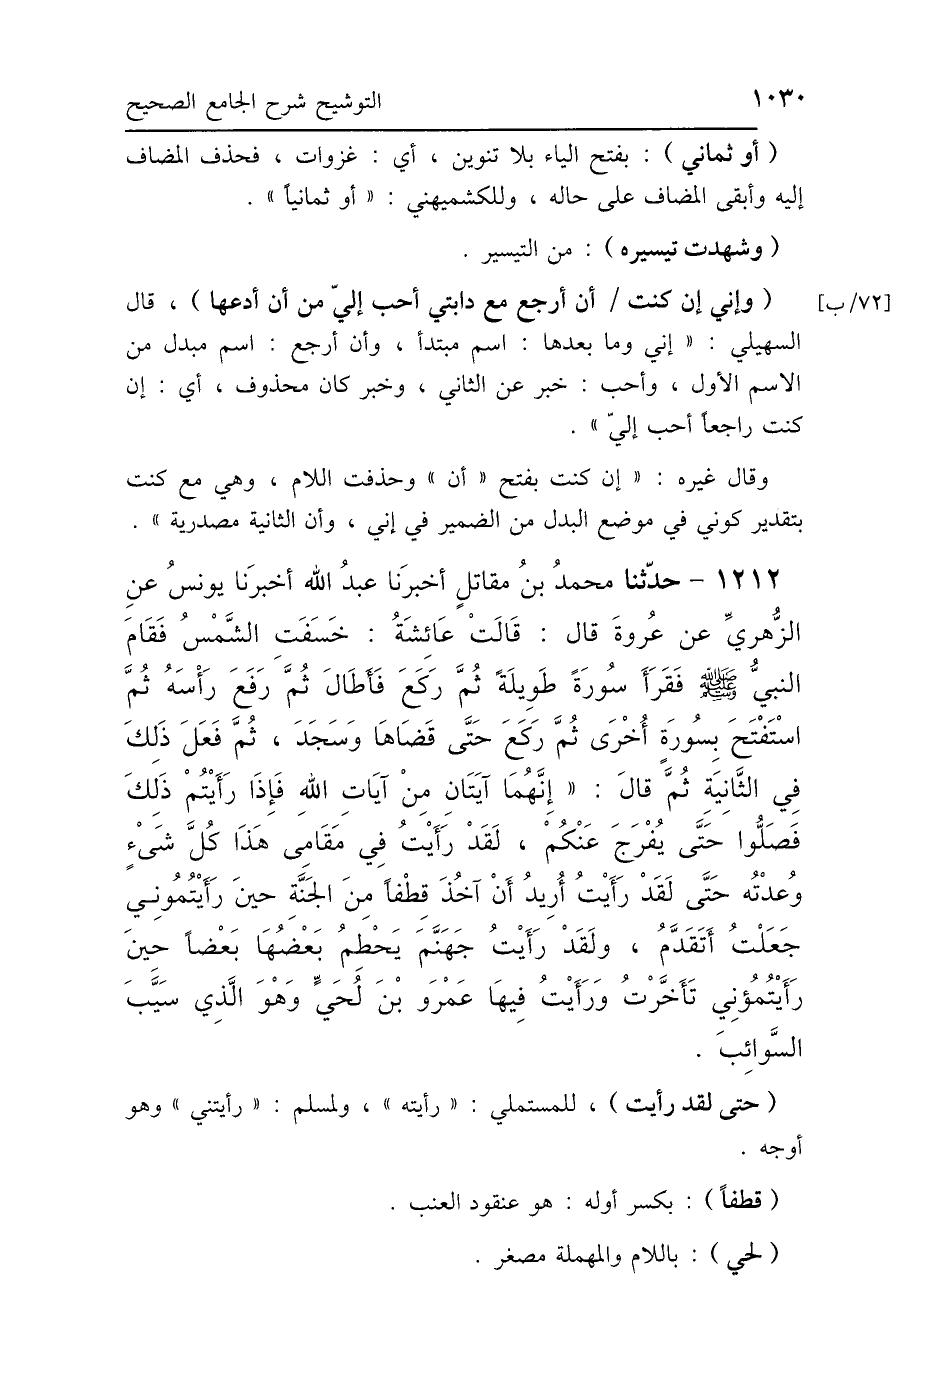 ١٠٣٠ التوشيح شرح الجامع الصحيح
( أو ثماني ) : بفتح الياء بلا تنوين ، أي : غزوات ، فحذف المضاف
إليه وأبقى المضاف على حاله ، وللكشميهني : « أو ثمانياً » .
( وشهدت تيسيره ) : من التيسير .
[٧٢/ب] ( وإني إن كنت / أن أرجع مع دابتي أحب إليّ من أن أدعها ) ، قال
السهيلي : « إني وما بعدها : اسم مبتدأ ، وأن أرجع : اسم مبدل من
الاسم الأول ، وأحب : خبر عن الثاني ، وخبر كان محذوف ، أي : إن
كنت راجعاً أحب إليّ » .
وقال غيره : « إن كنت بفتح « أن » وحذفت اللام ، وهي مع كنت
بتقدير كوني في موضع البدل من الضمير في إني ، وأن الثانية مصدرية » .
١٢١٢ - حدّثنا محمدُ بنُ مقاتلٍ أخبرَنا عبدُ الله أخبرَنا يونسُ عنِ
الزُّهريِّ عن عُروةَ قال : قَالَتْ عَائِشَةُ : خَسَفَتِ الشَّمْسُ فَقَامَ
النبيُّ ﷺ فَقَرَأَ سُورَةً طَوِيلَةً ثُمَّ رَكَعَ فَأَطَالَ ثُمَّ رَفَعَ رَأْسَهُ ثُمَّ
اسْتَفْتَحَ بِسُورَةٍ أُخْرَى ثُمَّ رَكَعَ حَتَّى قَضَاهَا وَسَجَدَ ، ثُمَّ فَعَلَ ذَلِكَ
فِي الثَّانِيَةِ ثُمَّ قَالَ : « إِنَّهُمَا آيَتَانِ مِنْ آيَاتِ الله فَإِذَا رَأَيْتُمْ ذَلِكَ
فَصَلُّوا حَتَّى يُفْرَجَ عَنْكُمْ ، لَقَدْ رَأَيْتُ فِي مَقَامِي هَذَا كُلَّ شَيْءٍ
وُعِدْتُه حَتَّى لَقَدْ رَأَيْتُ أُرِيدُ أَنْ آخُذَ قِطْفاً مِنَ الجَنَّةِ حِينَ رَأَيْتُمُونِي
جَعَلْتُ أَتَقَدَّمُ ، ولَقَدْ رَأَيْتُ جَهَنَّمَ يَحْطِمُ بَعْضُهَا بَعْضاً حِينَ
رَأَيْتُمُوْنِي تَأَخَّرْتُ وَرَأَيْتُ فِيهَا عَمْرَو بْنَ لُحَيٍّ وَهْوَ الَّذِي سَيَّبَ
السَّوَائِبَ .
( حتى لقد رأيت ) ، للمستملي : « رأيته » ، ولمسلم : « رأيتني » وهو
أوجه .
( قطفاً ) : بكسر أوله : هو عنقود العنب .
( لحي ) : باللام والمهملة مصغر .